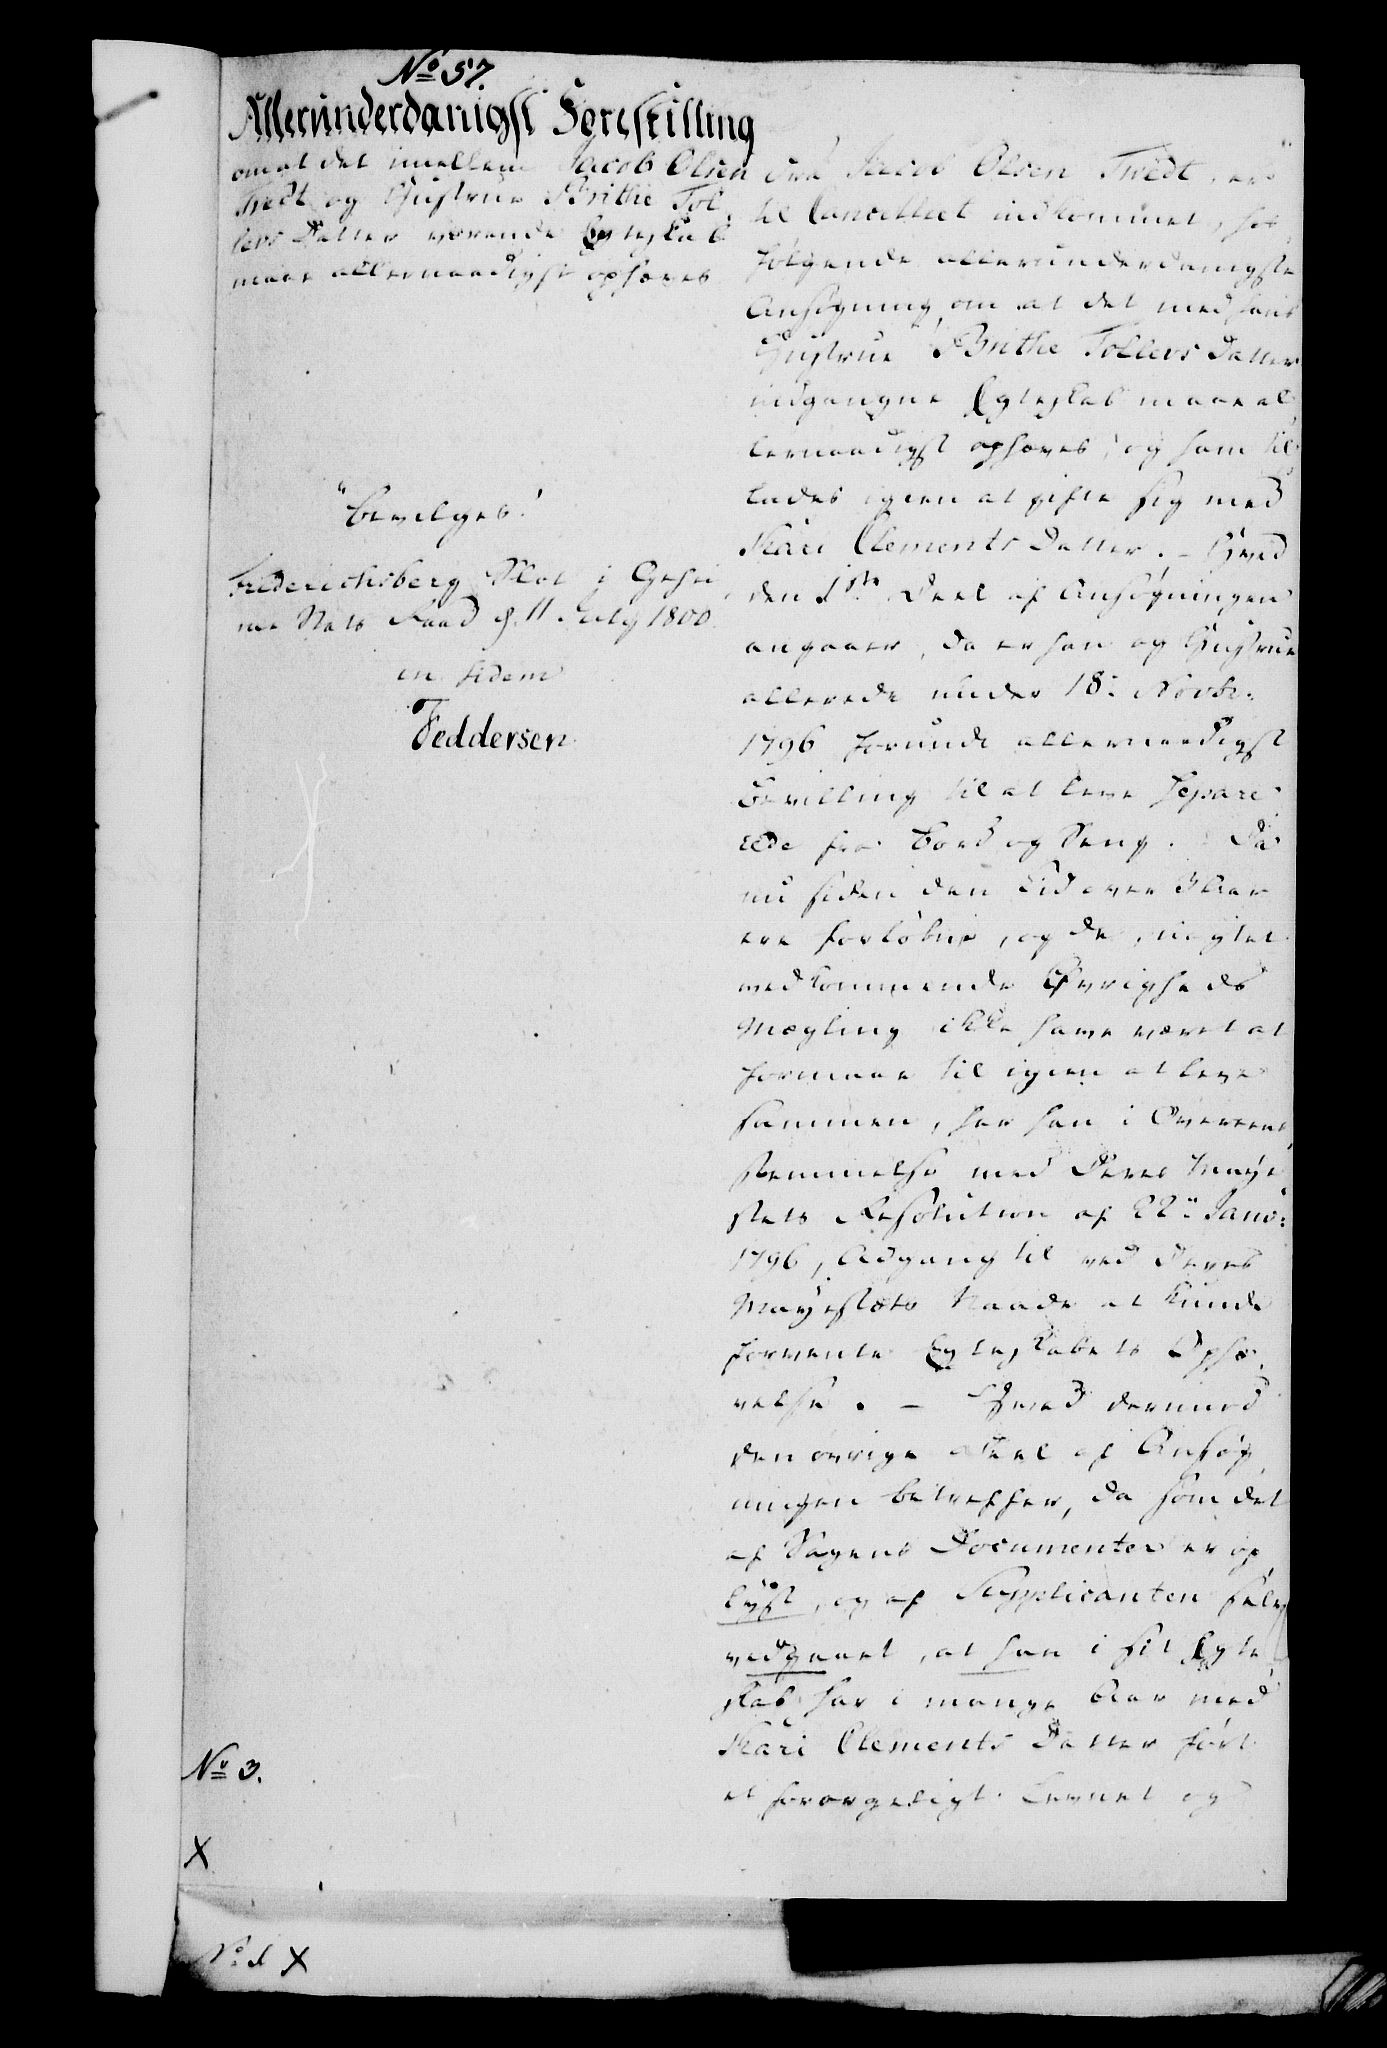 No 57.
Allerunderdanigst Forestilling
om at det imellem Jacob Olsen
Tvedt og Hustrue Birthe Tol-
levs Datter værende Egteskab
maae allernaadigst ophæves
"Bevilges!
Friderichsberg Slot i Geheime
Stats Raad d. 11 July 1800.
in fidem
Feddersen
No 3.
X
No 1 X
Fra Jacob Olsen Tvedt, er
til Cancelliet indkommet, hos-
følgende allerunderdanigste
Ansøgning, om at det med hans
Hustrue Birthe Tollevs Datter
indgangne Egteskab maae al-
lernaadigst ophæves, og ham til-
lades igien at gifte sig med
Kari Clements Datter. - Hvad
den 1ste Deel af Ansøgningen
angaaer, da er han og Hustrue
allerede under 18: Novbr:
1796 forundt allernaadigst
Bevilling til at leve separe-
rede fra Bord og Seng. - Da
nu siden den Tid over 3 Aar
ere forløbne, og de, uagtet
vedkommende Øvrigheds
Mægling ikke have været at
formaae til igien at leve
sammen, har han i Overeens-
stemmelse med Deres Maje-
stæts Resolution af 22de Janv:
1796, Adgang til ved Deres
Majestæts Naade at kunde
forvente Egteskabets Ophæ-
velse. - Hvad derimod
den øvrige Deel af Ansøg-
ningen betreffer, da som det
af Sagens Documenter er op-
lyst, og af Supplicanten selv
vedgaaet, at han i sit Egte-
skab har i mange Aar med
Kari Clements Datter ført
et forargeligt Levnet og